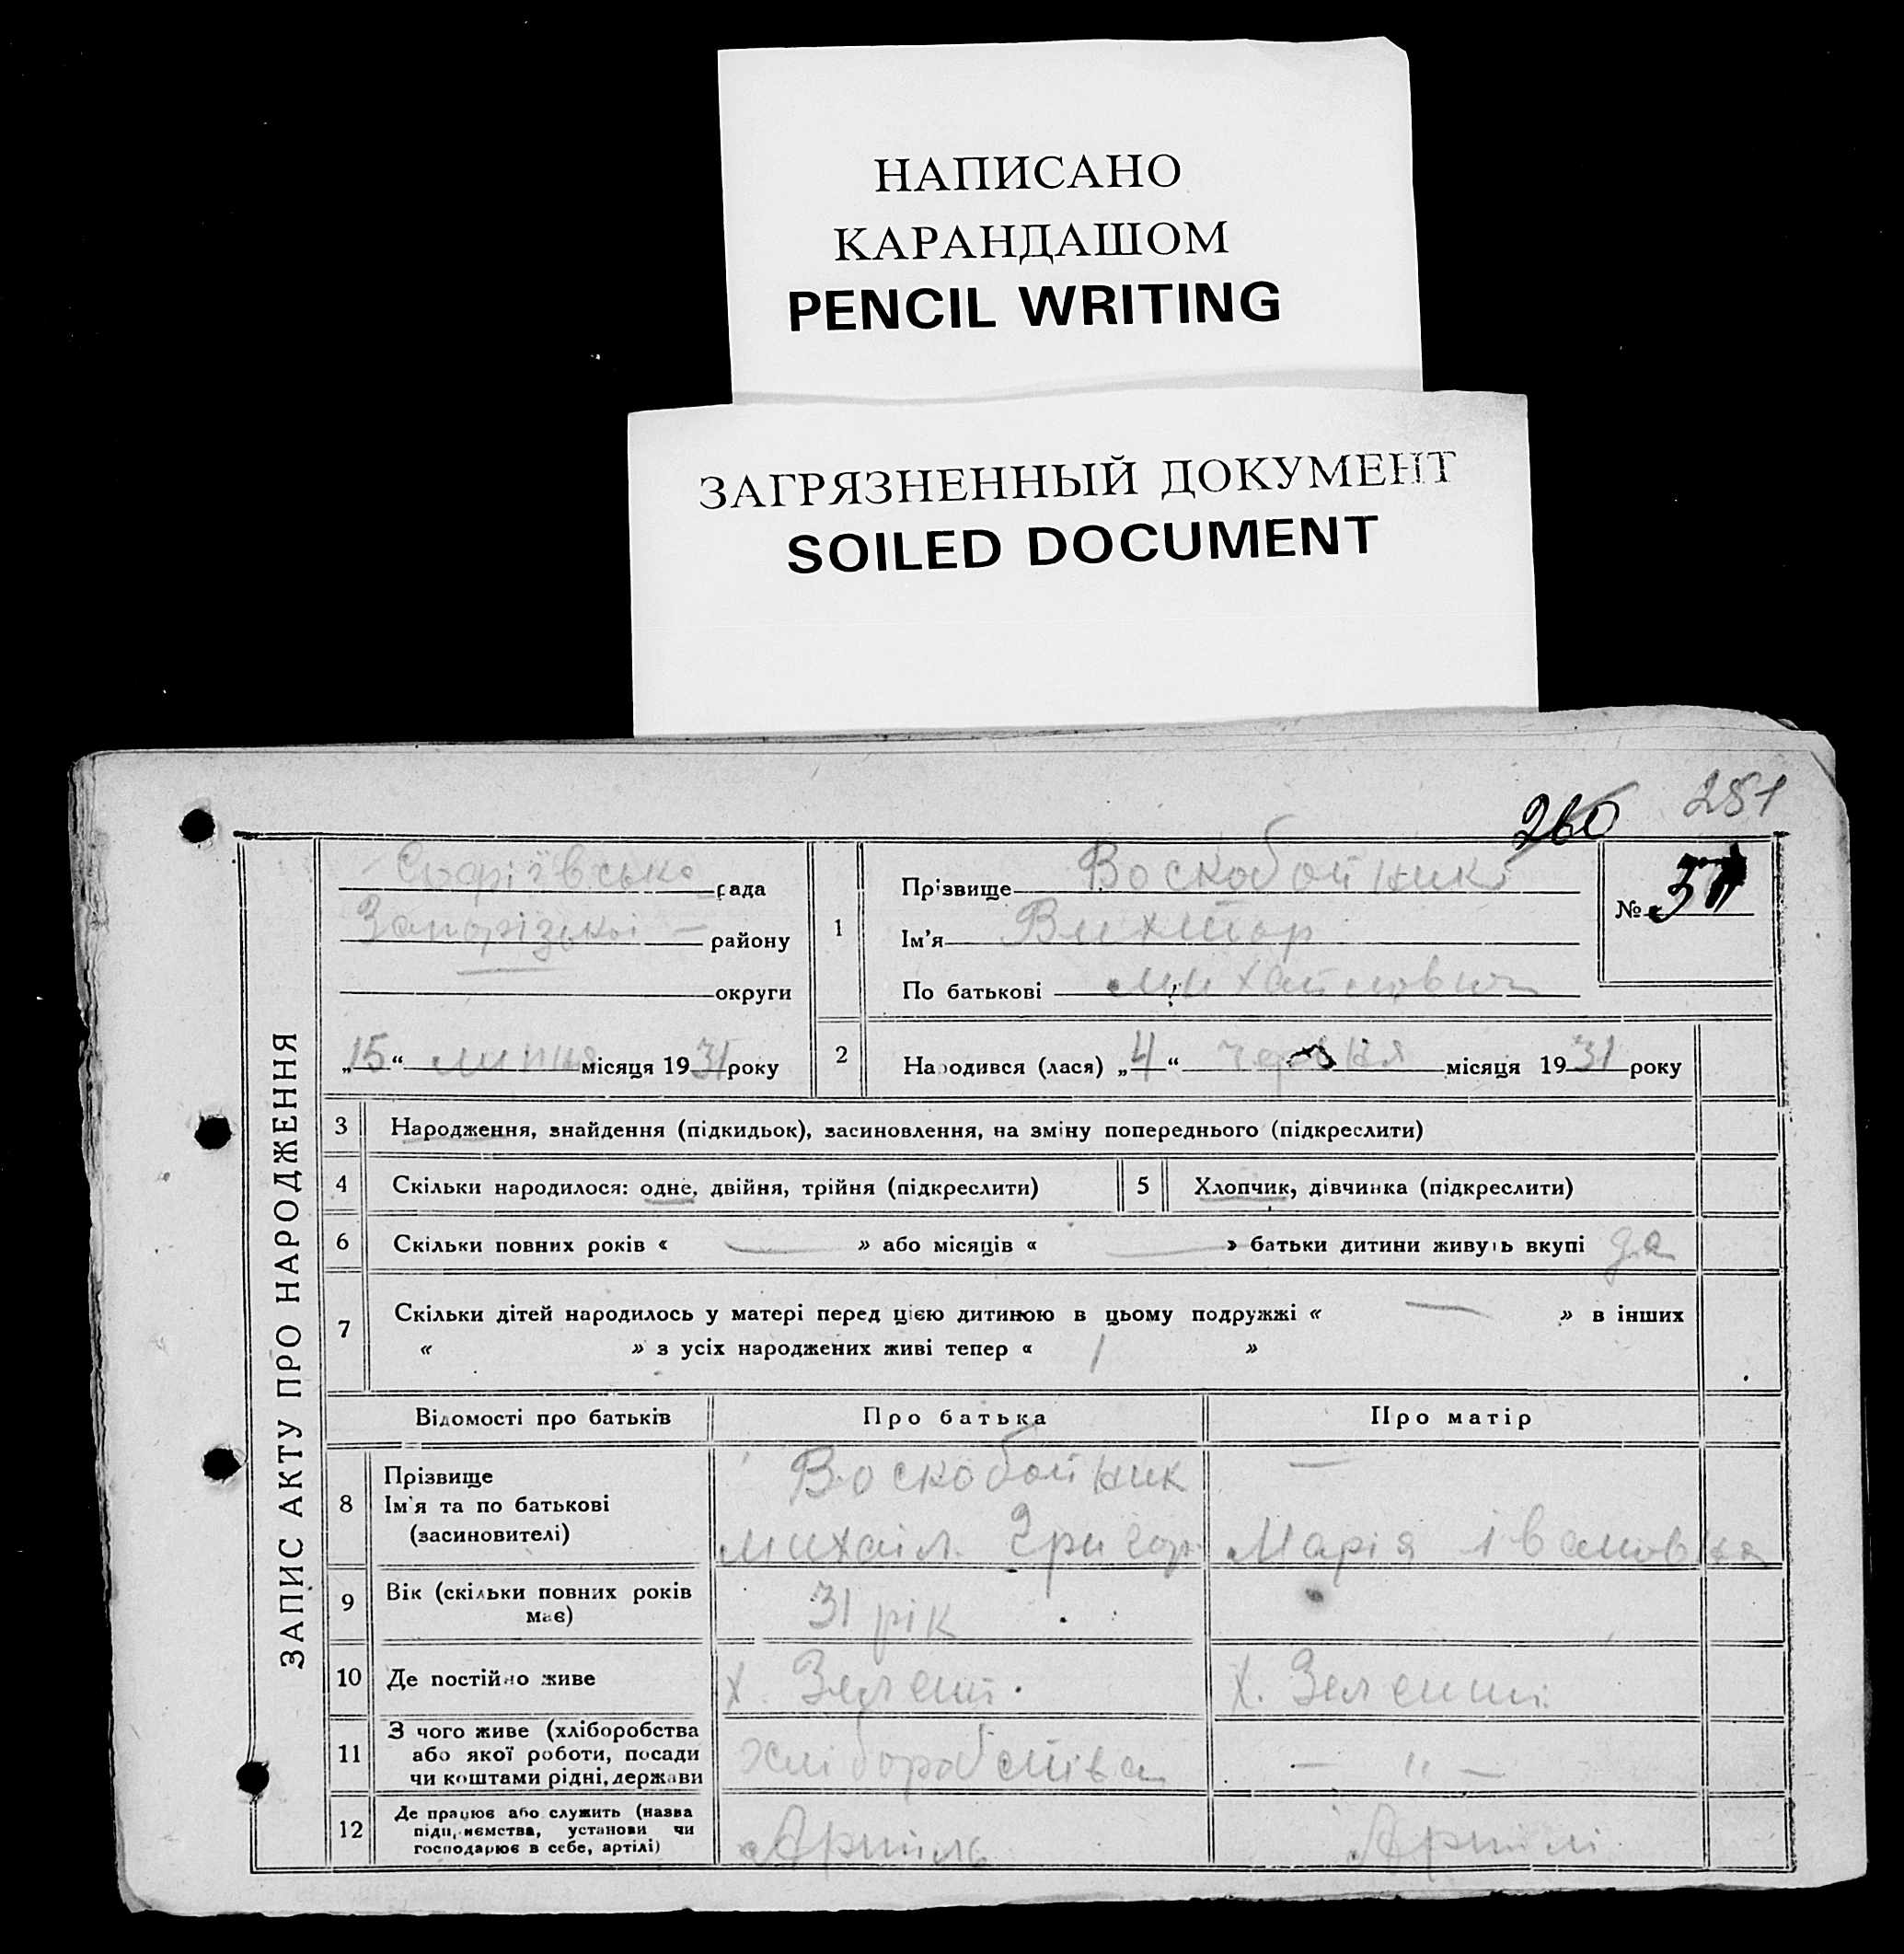 НАПИСАНО
КАРАНДАШОМ
PENCIL WRITING
ЗАГРЯЗНЕННЫЙ ДОКУМЕНТ
SOILED DOCUMENT
260 251
ЗАПИС АКТУ ПРО НАРОДЖЕННЯ
Софіївська рада
Запорізької району
округи
„15“ липня місяця 1931 року
1
Прізвище Воскобойник
Ім'я Вихтор
По батькові Михайлович
№
2
Народився (лася) „4“ червня місяця 1931 року
3 Народження, знайдення (підкидьок), засиновлення, на зміну попереднього (підкреслити)
4 Скільки народилося: одне, двійня, трійня (підкреслити)
5 Хлопчик, дівчинка (підкреслити)
6 Скільки повних років « — » або місяців « — » батьки дитини живуть вкупі да
7 Скільки дітей народилось у матері перед цією дитиною в цьому подружжі « — » в інших
« » з усіх народжених живі тепер « 1 »
Відомості про батьків Про батька Про матір
8 Прізвище
Ім'я та по батькові
(засиновителі)
Воскобойник —
Михаіл. Григор. Марія Івановна
9 Вік (скільки повних років
має)
31 рік
10 Де постійно живе х. Зелені. х. Зелениі.
11 З чого живе (хліборобства
або якої роботи, посади
чи коштами рідні, держави
хліборобства — " —
12 Де працює або служить (назва
підприємства, установи чи
господарює в себе, артілі)
Артіль Артілі